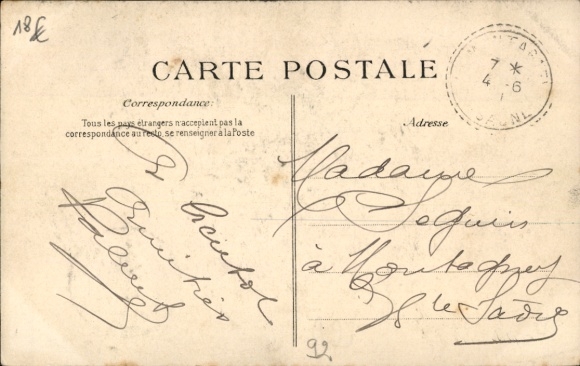 18€
CARTE POSTALE
Correspondance:
Tous les pays étrangers n'acceptent pas la
correspondance au recto, se renseigner à la Poste
Adresse
7 *
4 - 6
A bientôt
Amitiés
Madame
Seguin
à Montagney
92